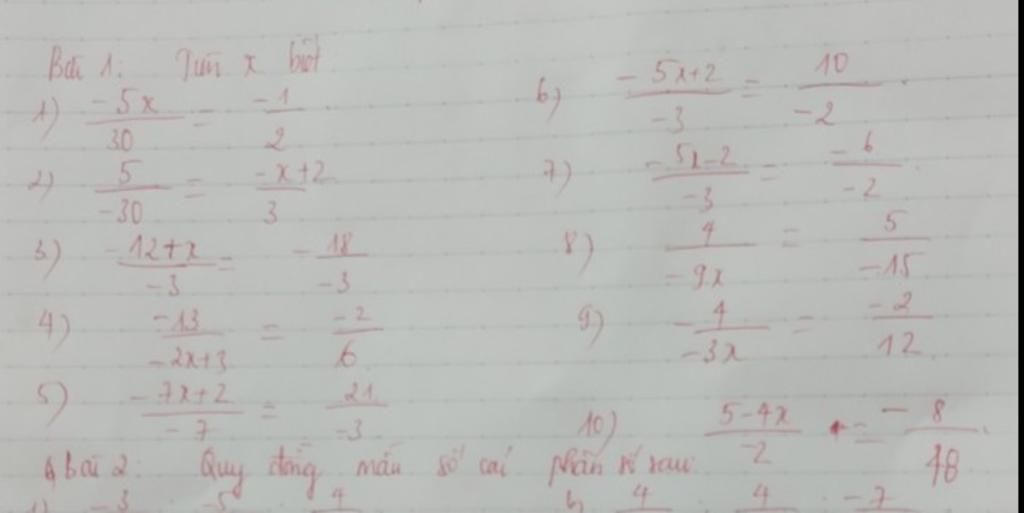 Bài 1: Tìm x biết
1) -5x/30 = -1/2
2) 5/-30 = -x+2/3
3) -12+x/-3 = -18/-3
4) -13/-2x+3 = -2/6
5) -7x+2/-7 = 21/-3
6) -5x+2/-3 = 10/-2
7) -5x-2/-3 = -6/-2
8) 4/-9x = 5/-15
9) -4/-3x = -2/12
10) 5-4x/-2 = -8/18
bài 2: Quy đồng mẫu số các phân số sau
1) -3 -5 4
4 4 -7